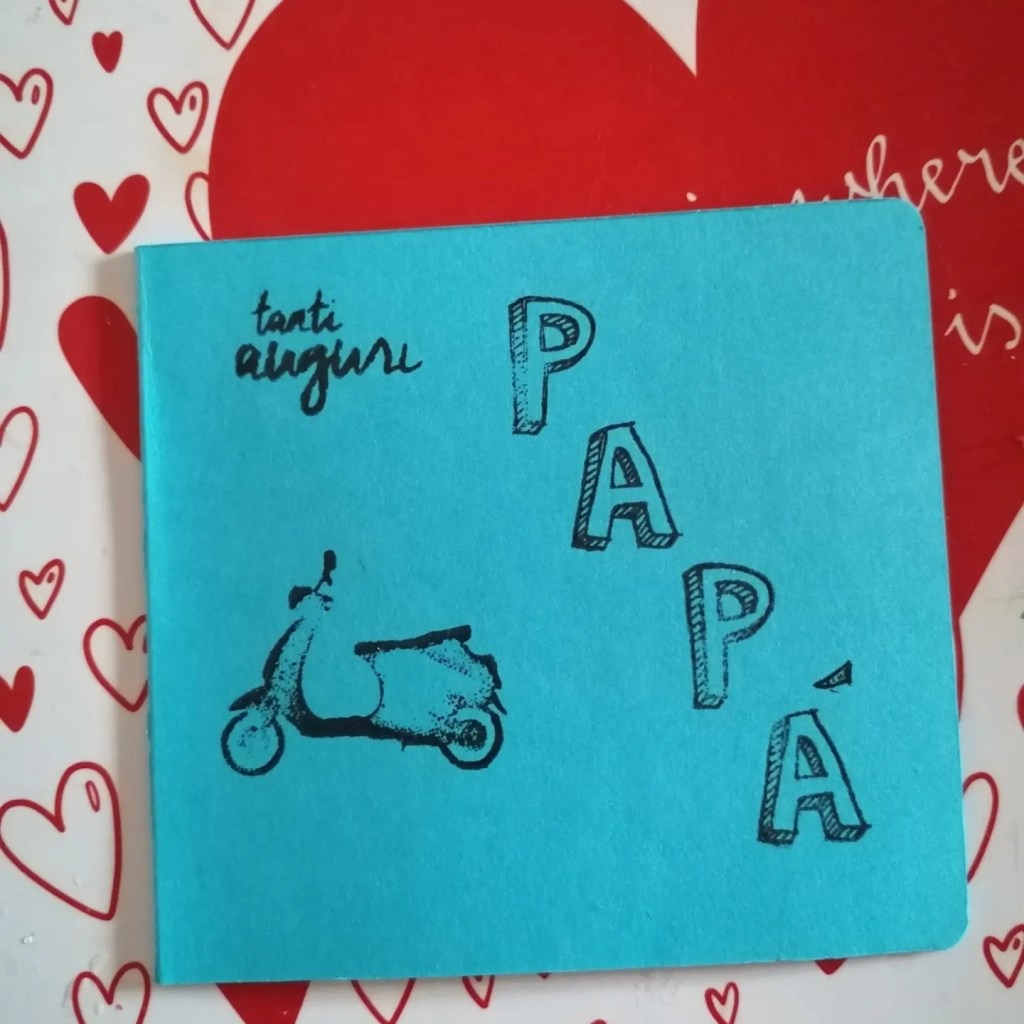 tanti
auguri
PAPÁ
where
is